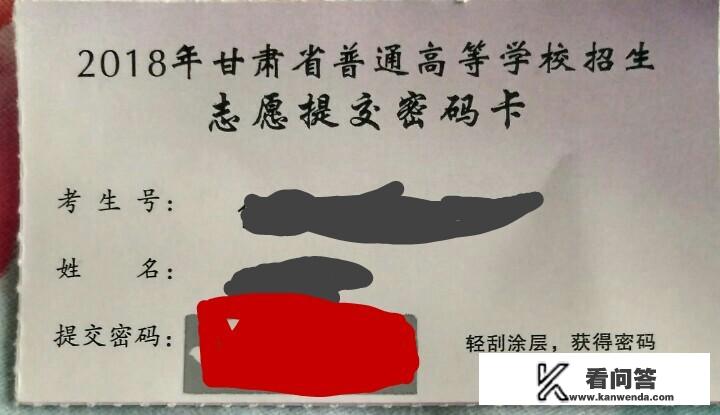 2018年甘肃省普通高等学校招生
志愿提交密码卡
考生号：
姓名：
提交密码：
轻刮涂层，获得密码
K 看问答
www.kanwenda.com